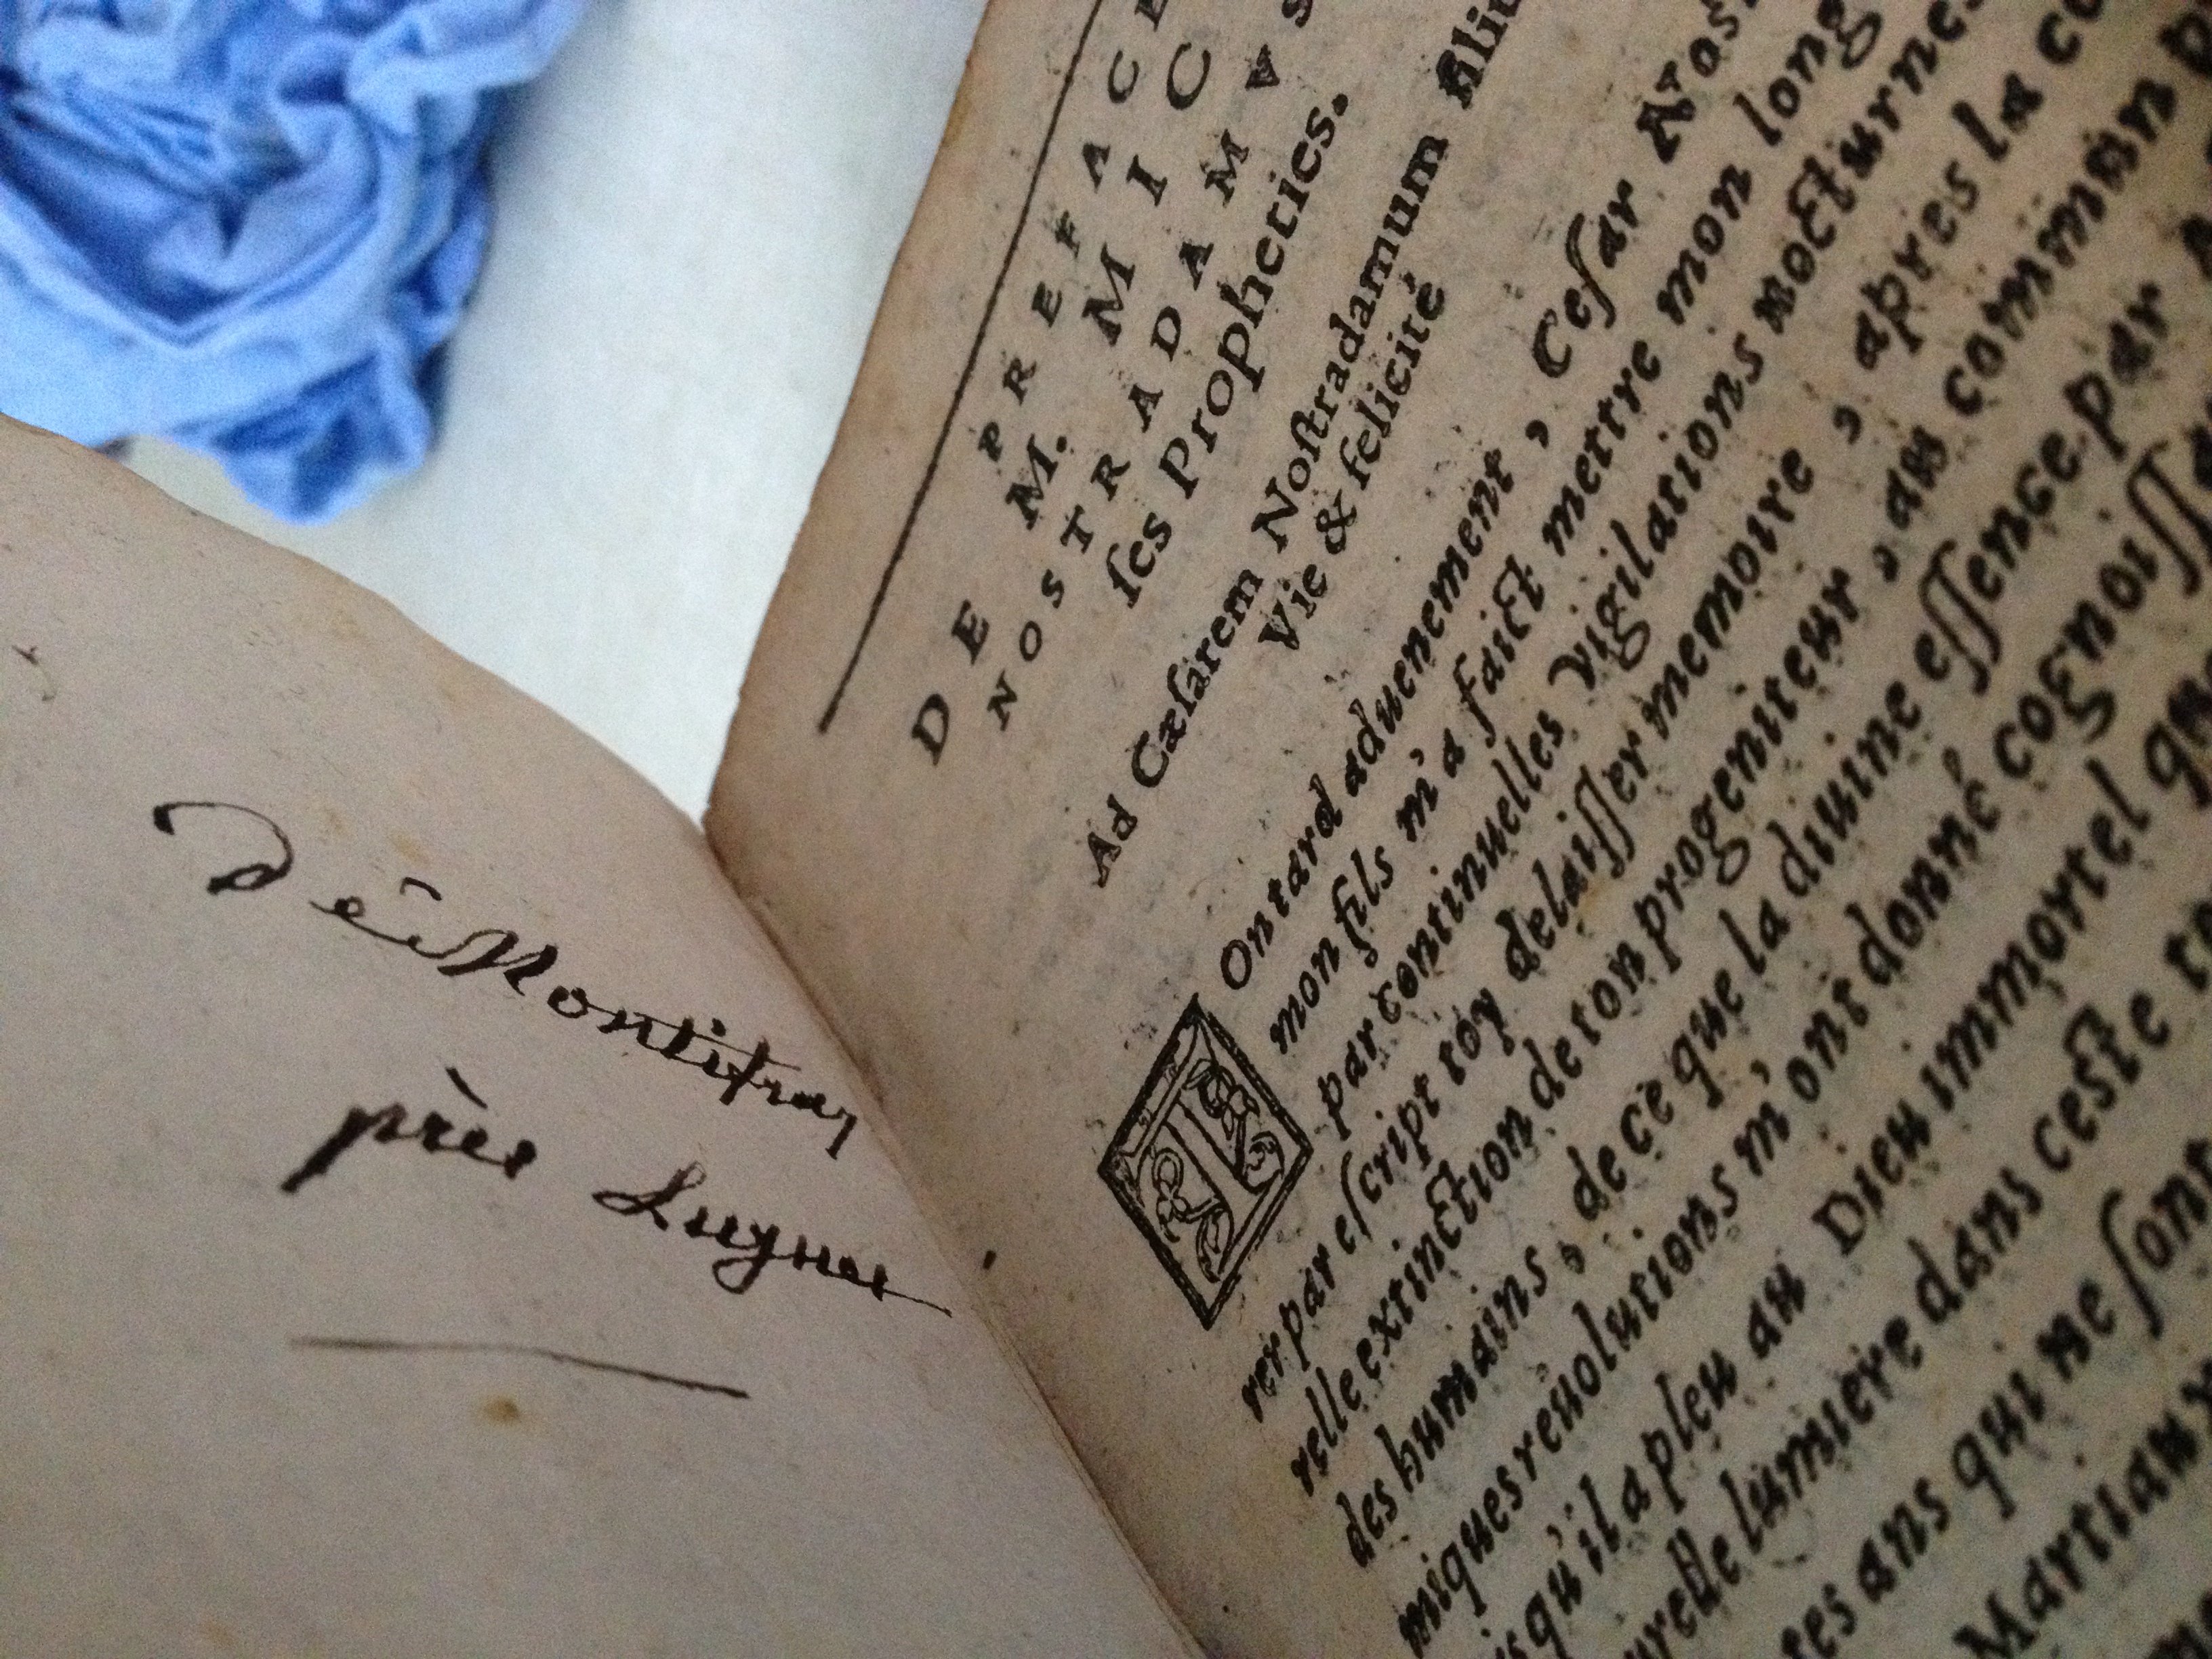 De Montifray
près Lugnes
PREFACE
DE M. MIC
NOSTRADAMVS
ſes Propheties.
Ad Cæſarem Noſtradamum filiu
Vie & felicité
TOn tard aduenement, Ceſar Nos
mon fils m'a faict mettre mon long
par continuelles vigilations nocturnes
rer par eſcript toy delaiſſer memoire, apres la co
relle extinction de ton progeniteur, au commun p
des humains, de ce que la diuine eſſence par A
miques reuolutions m'ont donné cognoiſſa
is qu'il a pleu au Dieu immortel que
urelle lumiere dans ceſte t
tes ans qui ne ſont
Martiaux